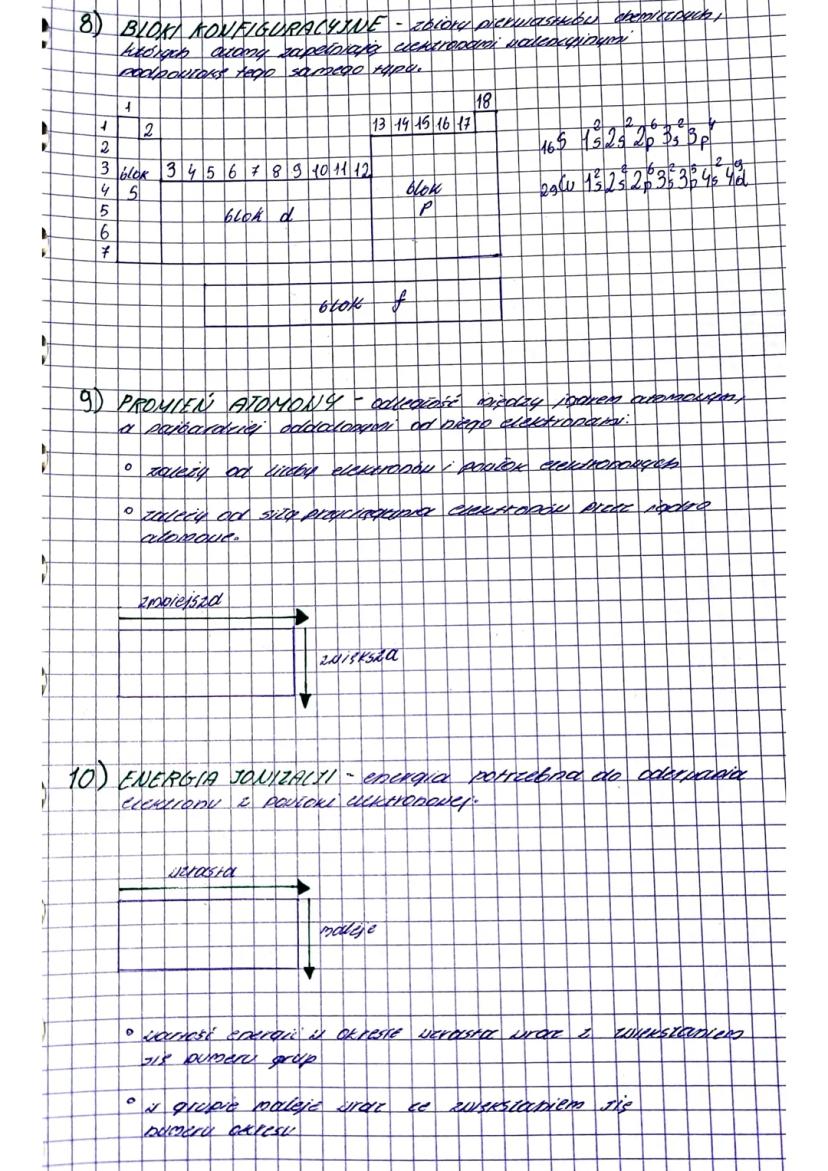 8) BLOKI KONFIGURACYJNE - zbiory pierwiastków chemicznych,
których atomy zapełniają elektronami walencyjnymi
podpowłokę tego samego typu.
1 18
1 2 13 14 15 16 17
2
3 blok 3 4 5 6 7 8 9 10 11 12
4 S blok
5 blok d p
6
7
blok f
16S 1s2 2s2 2p6 3s2 3p4
29Cu 1s2 2s2 2p6 3s2 3p6 4s2 4d9
9) PROMIEŃ ATOMOWY - odległość między jądrem atomowym,
a najbardziej oddalonymi od niego elektronami:
° zależy od liczby elektronów i powłok elektronowych
° zależy od siły przyciągania elektronów przez jądro
atomowe.
zmniejsza
zwiększa
10) ENERGIA JONIZACJI - energia potrzebna do oderwania
elektronu z powłoki elektronowej.
wzrasta
maleje
° wartość energii w okresie wzrasta wraz z zwiększaniem
się numeru grup
° w grupie maleje wraz ze zwiększaniem się
numeru okresu